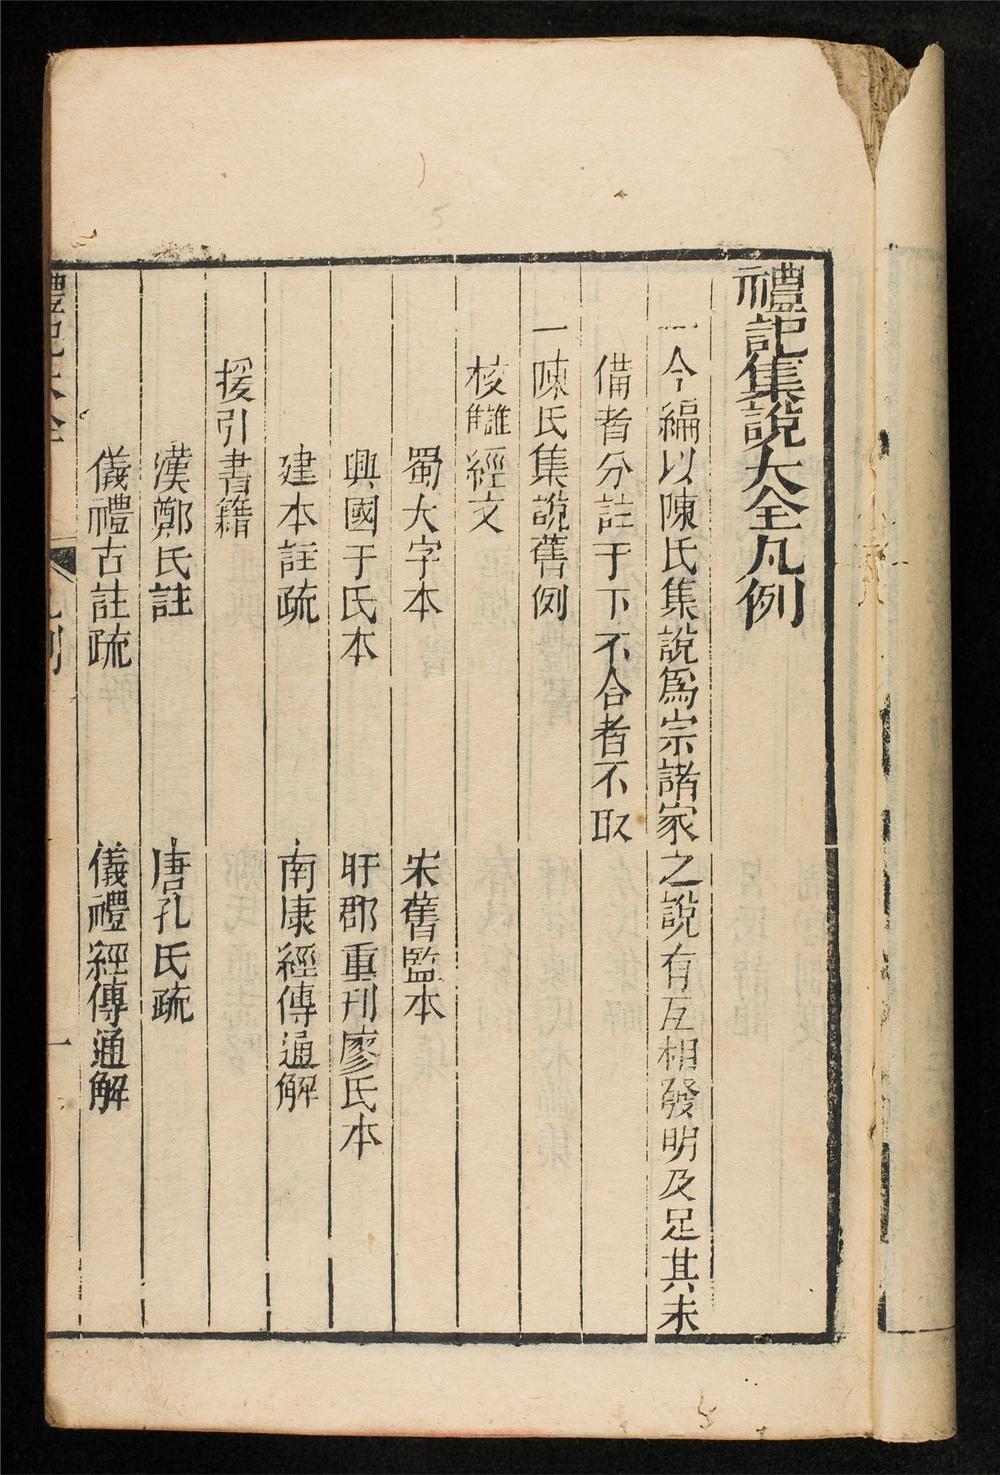 禮記集說大全凡例
一今編以陳氏集說爲宗諸家之說有互相發明及足其未
備者分註于下不合者不取
一陳氏集說舊例
校讎經文
蜀大字本　宋舊監本
興國于氏本　盱郡重刊廖氏本
建本註疏　南康經傳通解
援引書籍
漢鄭氏註　唐孔氏疏
儀禮古註疏　儀禮經傳通解
禮記大全　凡例　一